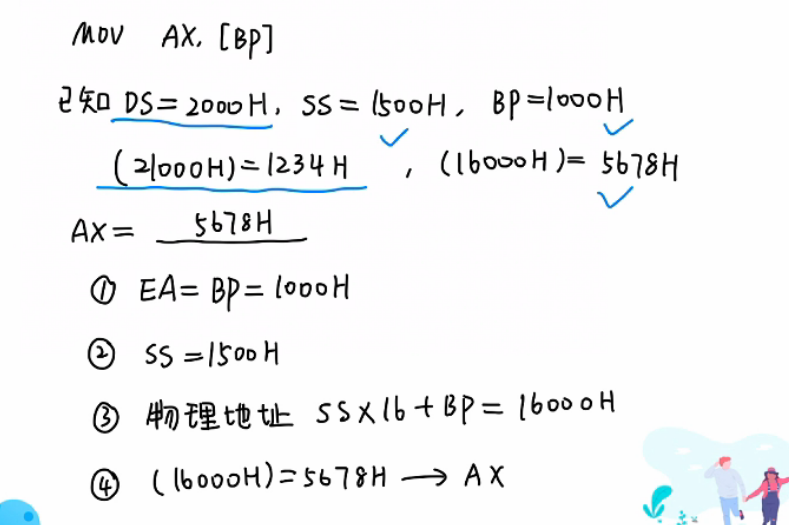 MOV AX, [BP]
已知 DS=2000H, SS=1500H, BP=1000H
(21000H)=1234H, (16000H)=5678H
AX= 5678H
① EA=BP=1000H
② SS=1500H
③ 物理地址 SS×16+BP=16000H
④ (16000H)=5678H → AX